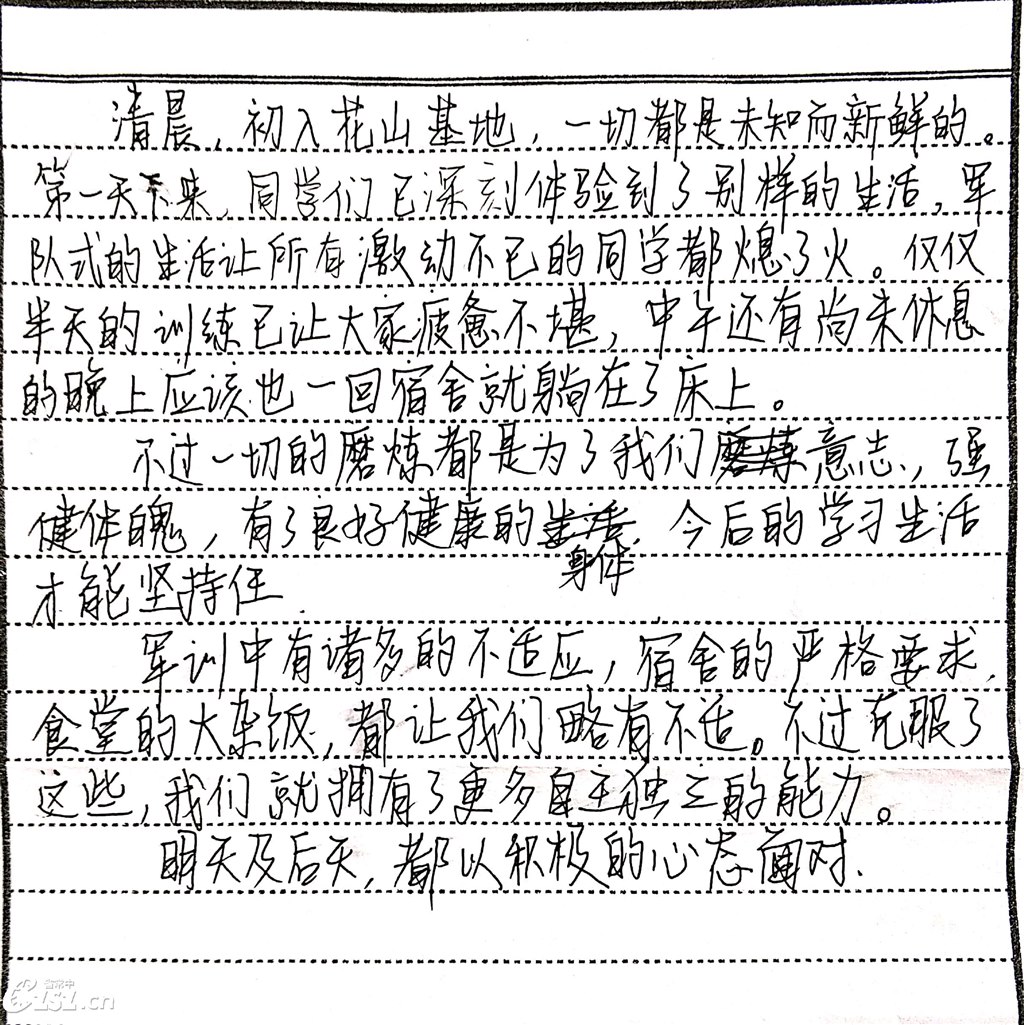 清晨，初入花山基地，一切都是未知而新鲜的。
第一天下来，同学们已深刻体验到了别样的生活，军
队式的生活让所有激动不已的同学都熄了火。仅仅
半天的训练已让大家疲惫不堪，中午还有尚未休息
的晚上应该也一回宿舍就躺在了床上。
不过一切的磨炼都是为了我们意志，强
健体魄，有了良好健康的身体，今后的学习生活
才能坚持住
军训中有诸多的不适应，宿舍的严格要求，
食堂的大杂饭，都让我们略有不适。不过克服了
这些，我们就拥有了更多自主独立的能力。
明天及后天，都以积极的心态面对.
1s1.cn